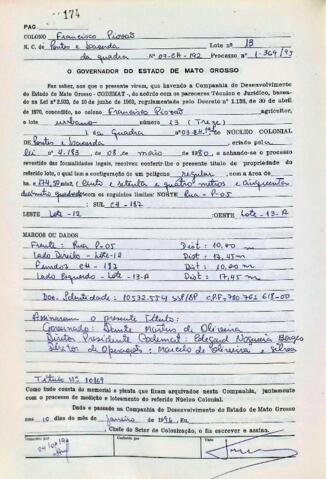 174
PAG.
COLONO Francisco Piovas
N. C. de Pontes e Lacerda LOTE N.º 13
da quadra N.º 03-CH-192 Processo n.º 1.364/95
O GOVERNADOR DO ESTADO DE MATO GROSSO
Faz saber, aos que o presente virem, que havendo a Companhia de Desenvolvimento
do Estado de Mato Grosso - CODEMAT -, de acôrdo com os pareceres Técnico e Jurídico, basea-
do na Lei nº 2.033, de 10 de junho de 1963, regulamentada pelo Decreto nº 1.138, de 30 de abril
de 1970, concedido, ao colono Francisco Piovas agricultor,
o lote urbano número 13 (Treze)
da Quadra nº 03-CH-192 NÚCLEO COLONIAL
de Pontes e Lacerda, criado pela
Lei nº 4.183 de 08 de maio de 1980, e achando-se o processo
revestido das formalidades legais, resolveu conferir-lhe o presente título de propriedade do
referido lote, o qual tem a configuração de um polígono regular, com a área de
174,50 (Cento e setenta e quatro metros e cinquenta
decímetros quadrados com os seguintes limites: NORTE Rua P-05
SUL CH-187
LESTE Lote-12 OESTE Lote-13-A
MARCOS OU DADOS
Frente: Rua P-05 Dist: 10,00 m
Lado Direito - Lote-12 Dist: 17,45 m
Fundos CH-187 Dist: 10,00 m
Lado Esquerdo - Lote-13-A Dist: 17,45 m
Doc. Identidade: 10532.574 SSP/SP CPF 780.761 618-00
Assinaram o presente Título:
Governador: Dante Martins de Oliveira
Diretor Presidente Codemat: Edegard Nogueira Borges
Diretor de Operações: Marcelo de Oliveira e Silva
Título Nº 10169
Como tudo consta do memorial e planta que ficam arquivados nesta Companhia, juntamente
com o processo de medição e loteamento do referido Núcleo Colonial.
Dado e passado na Companhia de Desenvolvimento do Estado de Mato Grosso
aos 10 dias do mês de janeiro de 1996, Eu
Chefe do Setor de Colonização, o fiz escrever e assino.
Visto